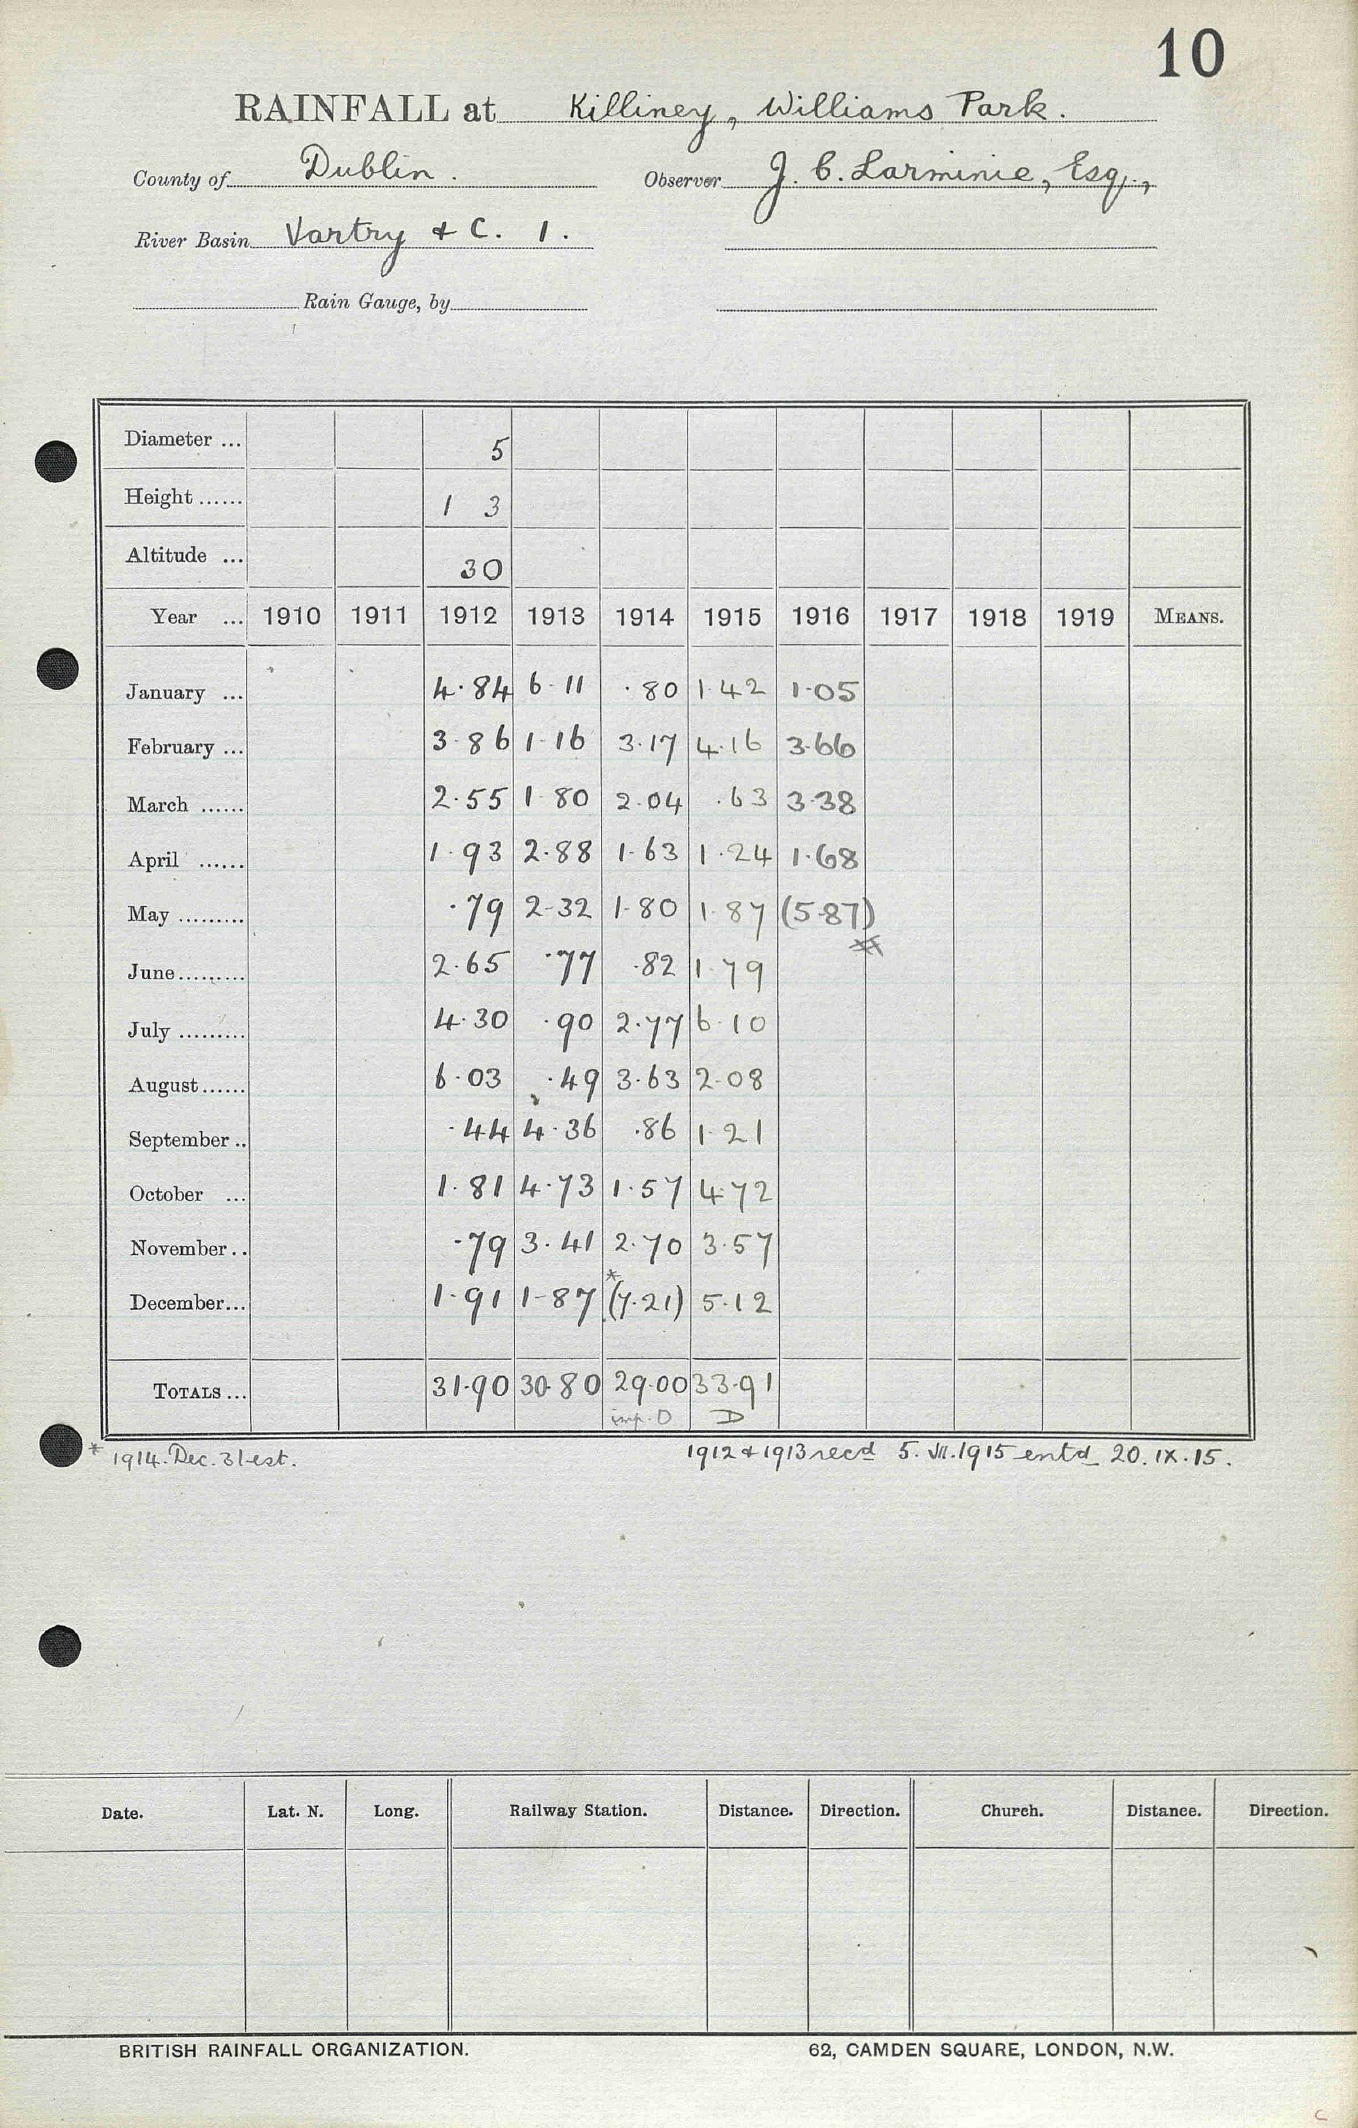 10
RAINFALL at Killiney, Williams Park.
County of Dublin. Observer J. C. Larminie, Esq.,
River Basin Vartry & C. 1.
Rain Gauge, by
Diameter ... 5
Height ...... 1 3
Altitude ... 30
Year ... 1910 1911 1912 1913 1914 1915 1916 1917 1918 1919 MEANS.
January ... 4.84 6.11 .80 1.42 1.05
February ... 3.86 1.16 3.17 4.16 3.66
March ...... 2.55 1.80 2.04 .63 3.38
April ...... 1.93 2.88 1.63 1.24 1.68
May ......... .79 2.32 1.80 1.87 (5.87)
June ......... 2.65 .77 .82 1.79
July ......... 4.30 .90 2.77 6.10
August ...... 6.03 .49 3.63 2.08
September .. .44 4.36 .86 1.21
October ... 1.81 4.73 1.57 4.72
November .. .79 3.41 2.70 3.57
December ... 1.91 1.87 *(7.21) 5.12
TOTALS ... 31.90 30.80 29.00 33.91
imp. D D
* 1914. Dec. 31 est. 1912 & 1913 recd 5. VII. 1915 entd 20. IX. 15.
Date. Lat. N. Long. Railway Station. Distance. Direction. Church. Distance. Direction.
BRITISH RAINFALL ORGANIZATION. 62, CAMDEN SQUARE, LONDON, N.W.